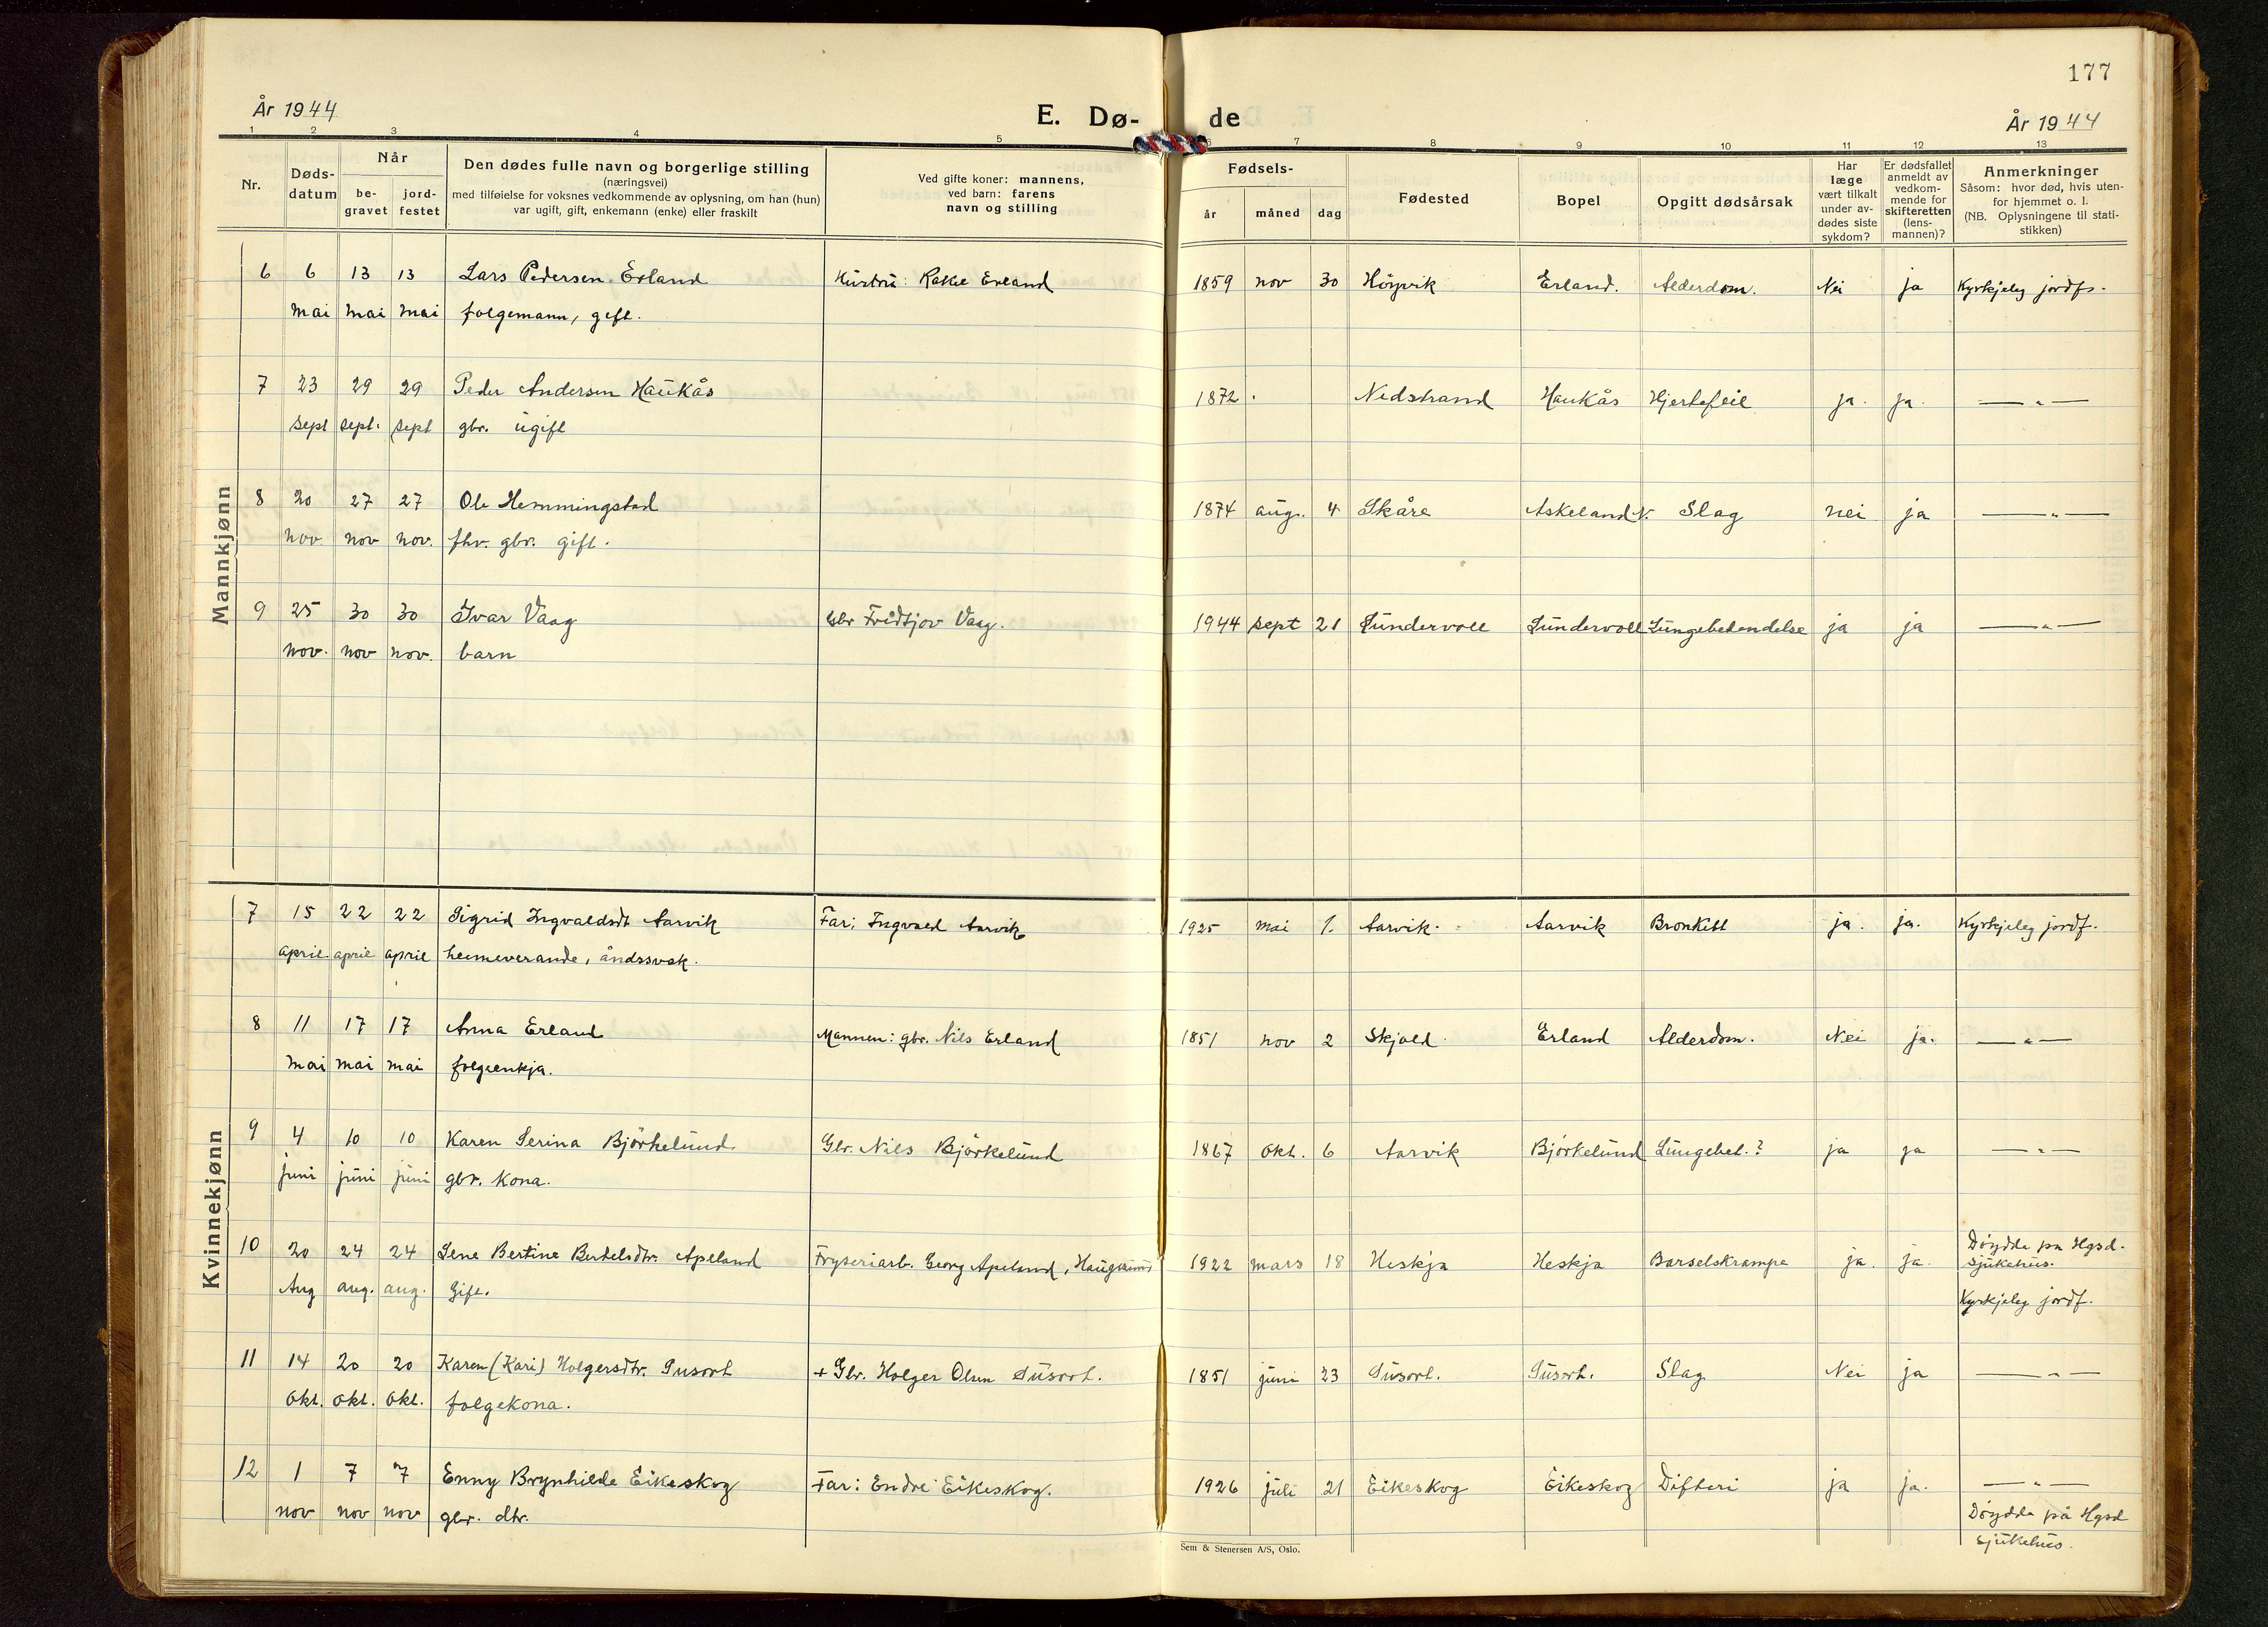 177
År 1944
E. Dø-
de
År 1944
1 2 3 4 5 6 7 8 9 10 11 12 13
Nr.
Døds-
datum
Når
be-
gravet
jord-
festet
Den dødes fulle navn og borgerlige stilling
(næringsvei)
med tilføielse for voksnes vedkommende av oplysning, om han (hun)
var ugift, gift, enkemann (enke) eller fraskilt
Ved gifte koner: mannens,
ved barn: farens
navn og stilling
Fødsels-
år
måned
dag
Fødested
Bopel
Opgitt dødsårsak
Har
læge
vært tilkalt
under av-
dødes siste
sykdom?
Er dødsfallet
anmeldt av
vedkom-
mende for
skifteretten
(lens-
mannen)?
Anmerkninger
Såsom: hvor død, hvis uten-
for hjemmet o. l.
(NB. Oplysningene til stati-
stikken)
Mannkjønn
6 6 13 13 Lars Pedersen Erland Hustru: Rakel Erland 1859 nov 30 Höyvik Erland. Alderdom. Nei ja Kyrkjeleg jordf.
mai mai mai folgemann, gift.
7 23 29 29 Peder Andersen Haukås 1872 Nedstrand Haukås Hjertefeil ja. ja. — " —
sept sept. sept gbr. ugift
8 20 27 27 Ole Hemmingstad 1874 aug. 4 Skåre Askeland N. Slag nei ja — " —
nov. nov nov. fhv. gbr. gift.
9 25 30 30 Ivar Vaag gbr Fridtjov Vaag. 1944 sept 21 Lundervoll Lundervoll Lungebetendelse ja ja — " —
nov. nov nov. barn
Kvinnekjønn
7 15 22 22 Sigrid Ingvaldsdt Aarvik Far: Ingvald Aarvik 1925 mai 1. Aarvik. Aarvik Bronkitt ja. ja. Kyrkjeleg jordf.
april april april heimeverande, åndssvak.
8 11 17 17 Anna Erland Mannen: gbr. Nils Erland 1851 nov 2 Skjold Erland Alderdom. Nei ja. — " —
mai mai mai folgeenkja.
9 4 10 10 Karen Serina Björkelund Gbr. Nils Björkelund 1867 okt. 6 Aarvik Björkelund Lungebet.? ja ja — " —
juni juni juni gbr. kona.
10 20 24 24 Lene Bertine Bertelsdtr. Apeland Fryseriarb. Georg Apeland, Haugesund 1922 mars 18 Heskja Heskja Barselskrampe ja. ja. Döydde på Hgsd.
sjukehus.
Aug aug. aug. Gift. Kyrkjeleg jordf.
11 14 20 20 Karen (Kari) Holgersdtr. Susort + Gbr. Holger Olsen Susort. 1851 juni 23 Susort. Susort. Slag Nei ja — " —
okt. okt. okt. folgekona.
12 1 7 7 Enny Brynhilde Eikeskog Far: Endre Eikeskog. 1926 juli 21 Eikeskog Eikeskog Difteri ja ja. — " —
nov nov nov gbr. dtr. Döydde på Hgsd
sjukehus.
Sem & Stenersen A/S, Oslo.